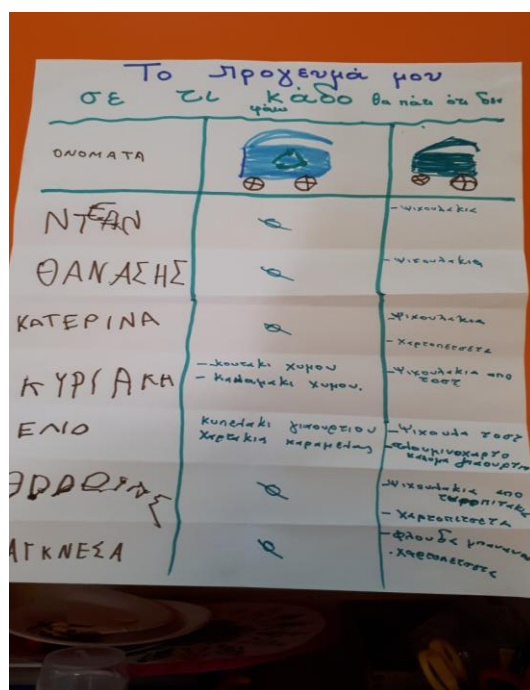 Το προγευμά μου
σε τι κάδο θα πάει ότι δεν
φάω
ΟΝΟΜΑΤΑ
ΝΤΕΑΝ
- Ψιχουλάκια
ΘΑΝΑΣΗΣ
- Ψιχουλάκια
ΚΑΤΕΡΙΝΑ
- Ψιχουλάκια
- χαρτοπετσέτα
ΚΥΡΙΑΚΗ
- κουτάκι χυμού
- καλαμάκι χυμού.
- Ψιχουλάκια από
τοστ
ΕΝΙΟ
κυπελάκι γιαουρτιού
χαρτάκια καραμέλας
- Ψίχουλα τοστ
- αλουμινόχαρτο
γιαούρτι
- Ψιχουλάκια από
τυροπιτάκι
- χαρτοπετσέτα
ΑΓΚΝΕΣΑ
- φλούδα μπανάνα
- χαρτοπετσέτα